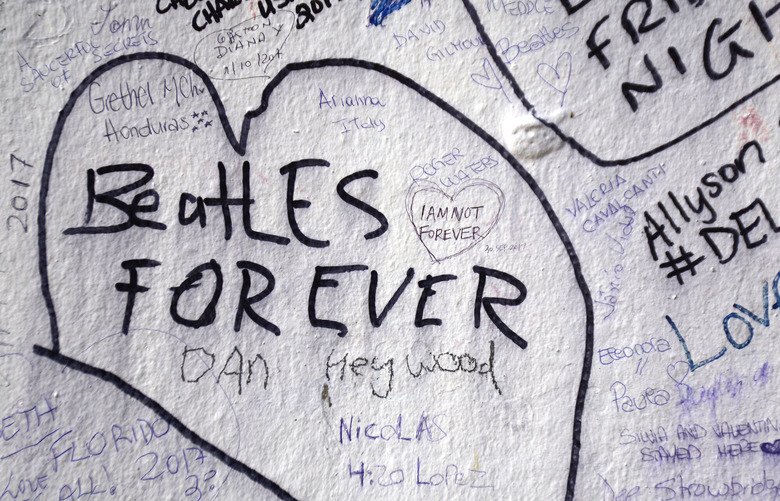 John
A SAUCERFUL
OF SECRETS
DIANA Y
MEDDLE
DAVID
GILMOUR
Beatles
FRI
NIGH
Grethel
Honduras
Arianna
Italy
2017
BeatLES
FOREVER
ROGER
WATERS
I AM NOT
FOREVER
30 SEP 2017
VALERIA
CAVALCANTI
Allyson
#DEL
LOVE
DAN Heywood
Eleonora
Paula
NicoLAS
4:20 Lopez
ETH
FLORIDO
LOVE
ALL! 2017
SILVIA AND VALENTIN
STAYED HERE
Strawbridge